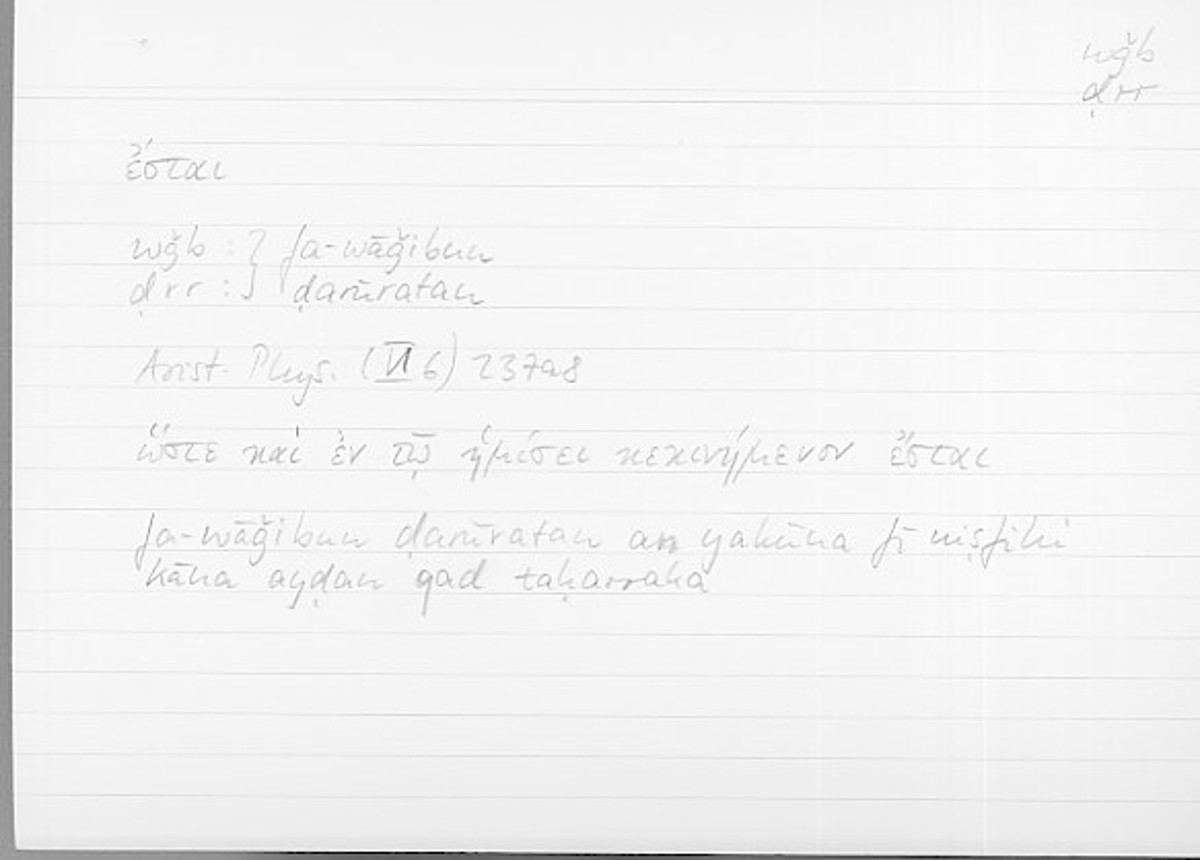 wǧb
ḍrr
ἔσται
wǧb : } fa-wāǧibun
ḍrr : } ḍarūratan
Arist. Phys. (VI 6) 237a8
ὥστε καὶ ἐν τῷ ἡμίσει κεκινημένον ἔσται
fa-wāǧibun ḍarūratan an yakūna fī niṣfihi
kāna ayḍan qad taḥarraka